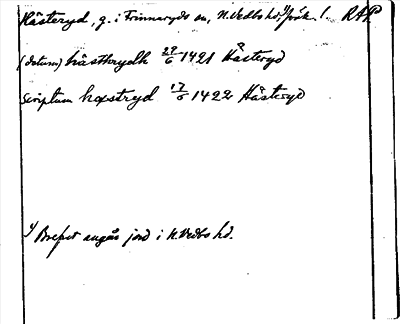 Hästeryd, g. i Frinnaryds sn, N. Vedbo hd. 1) Jönk. l. RAP
(datum) hästherydh 29/6 1421 Håsteryd
scriptum hæstryd 17/6 1422 Håsteryd
1) Brefvet angår jord i N. Vedbo hd.